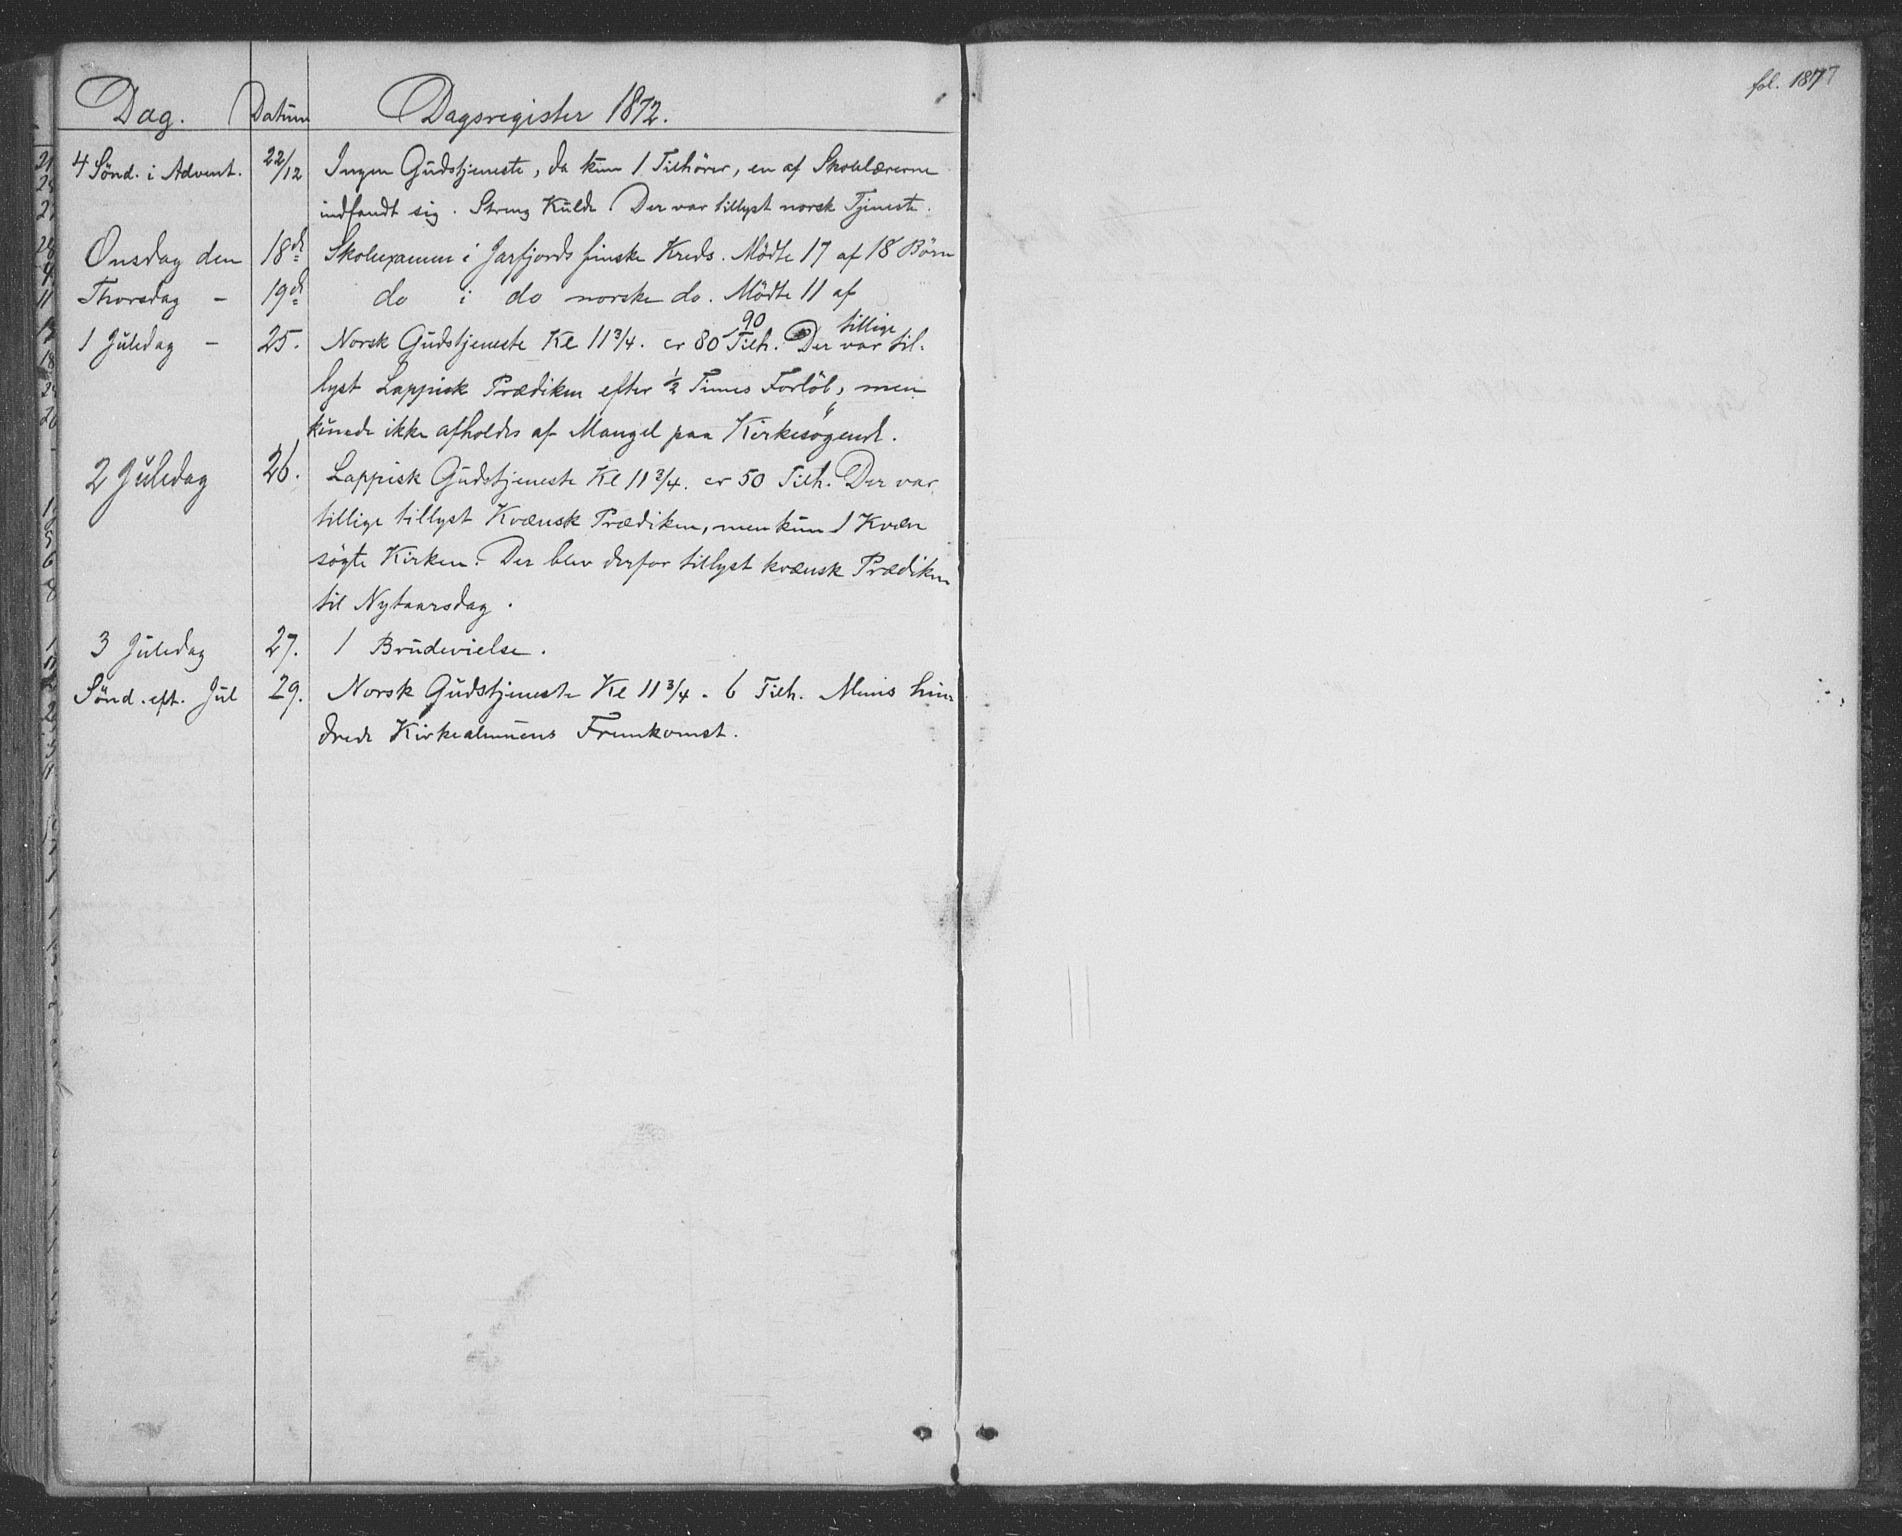 fol. 187
Dag. Datum Dagsregister 1872.
4 Sönd. i Advent. 22/12 Ingen Gudstjeneste, da kun 1 Tilhörer, en af Skolelærerne
indfandt sig. Streng Kulde. Der var tillyst norsk Tjeneste.
Onsdag den 18de Skolexamen i Jarfjords finske Kreds. Mödte 17 af 18 Börn
Thorsdag - 19de do i do norske do. Mödte 11 af
90 tillige
1 Juledag - 25. Norsk Gudstjeneste Kl 11 3/4. cr 80 Tilh. Der var til-
lyst Lappisk Prædiken efter 1/2 Times Forlöb, men
kunde ikke afholdes af Mangel paa Kirkesögende.
2 Juledag 26. Lappisk Gudstjeneste Kl 11 3/4. cr 50 Tilh. Der var
tillige tillyst Kvænsk Prædiken, men kun 1 Kvæn
sögte Kirken. Der blev derfor tillyst kvænsk Prædiken
til Nytaarsdag.
3 Juledag 27. 1 Brudevielse.
Sönd. eft. Jul 29. Norsk Gudstjeneste Kl 11 3/4. 6 Tilh. Menis hin-
drede Kirkealmuens Fremkomst.